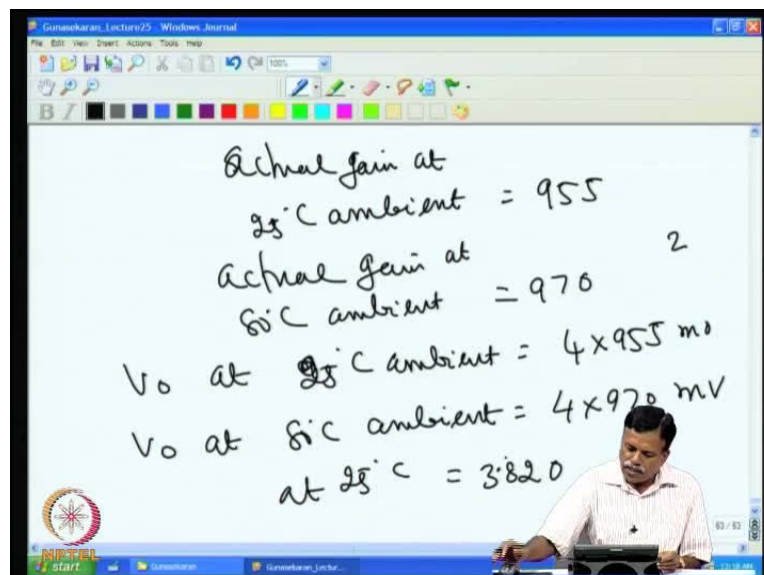 Gunasekaran_Lecture25 - Windows Journal
File Edit View Insert Actions Tools Help
100%
B I
Actual gain at
25°C ambient = 955
actual gain at
50°C ambient = 970
2
Vo at 25°C ambient = 4×955 mv
Vo at 50°C ambient = 4×970 mV
at 25°C = 3.820
63 / 63
NPTEL
start
Gunasekaran
Gunasekaran_Lectur...
12:18 AM